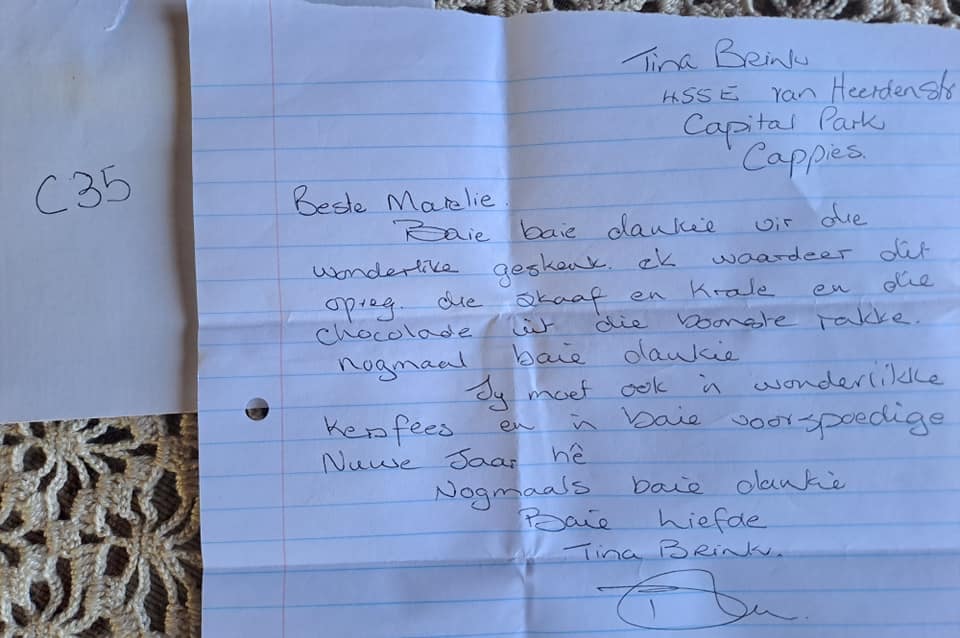 C35
Tina Brink
HSSE van Heerdenstr
Capital Park
Cappies.
Beste Marelie.
Baie baie dankie vir die
wonderlike geskenk. Ek waardeer dit
opreg. die Skaaf en Krale en die
chocolade uit die boonste rakke.
Nogmaal baie dankie
Jy moet ook 'n wonderlikke
Kersfees en 'n baie voorspoedige
Nuwe Jaar hê
Nogmaals baie dankie
Baie liefde
Tina Brink.